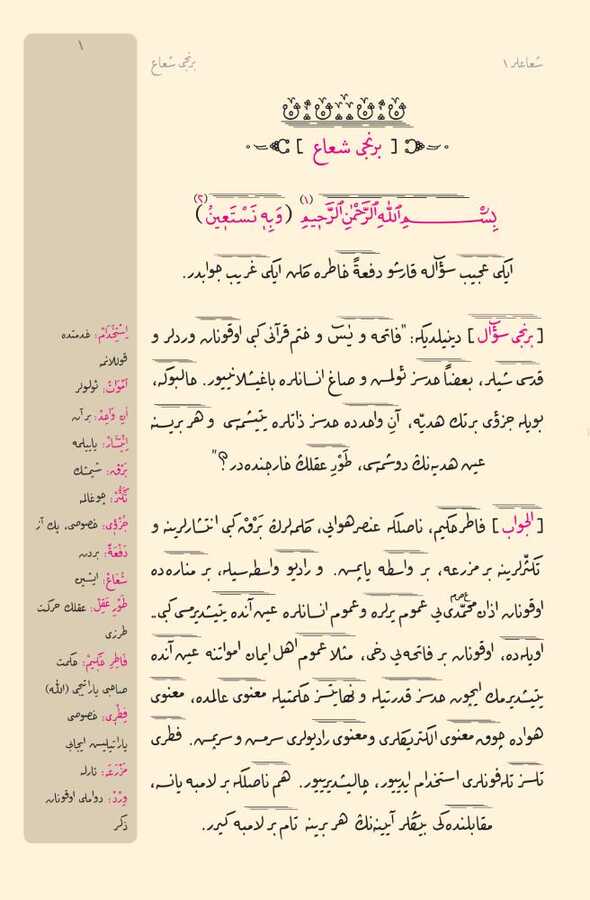 شعاعلر ١
برنجی شعاع
١
[ برنجی شعاع ]
بِسْمِ اللّٰهِ الرَّحْمٰنِ الرَّحٖيمِ (١) (وَبِهٖ نَسْتَعٖينُ) (٢)
ایكی عجیب سؤاله قارشو دفعةً خاطره كلن ایكی غریب جوابدر.
[ برنجی سؤال ] دینیلدیكه: "فاتحه و یٰسٓ و ختم قرآنی كبی اوقونان وردلر و
قدسی شیلر، بعضًا حدسز ئولمش و صاغ انسانلره باغیشلانییور. حالبوكه،
بویله جزؤی برتك هدیه، آنِ واحدده حدسز ذاتلره یتیشمسی و هر برینه
عین هدیه‌نڭ دوشمسی، طَوْرِ عقلڭ خارجنده‌در؟"
[ الجواب ] فاطر حكیم، ناصلكه عنصر هوایی، كلمه‌لرك بَرْقْ كبی انتشارلرینه و
تكثّرلرینه بر مزرعه، بر واسطه یاپمش. و رادیو واسطه‌سیله، بر مناره‌ده
اوقونان اذان محمّدی (عصم) یی عموم یرلره و عموم انسانلره عین آنده یتیشدیرمسی كبی..
اویله‌ده، اوقونان بر فاتحه‌یی دخی، مثلا عموم اهل ایمان امواتنه عین آنده
یتیشدیرمك ایچون حدسز قدرتیله و نهایتسز حكمتیله معنوی عالمده، معنوی
هواده چوق معنوی الكتریكلری و معنوی رادیولری سرمش و سرپمش. فطری
تلسز تله‌فونلری استخدام ایدییور، چالیشدیرییور. هم ناصلكه بر لامبه یانسه،
مقابلنده‌كی بیڭلر آیینه‌نڭ هر برینه تام بر لامبه كیرر.
اِسْتِخْدَامْ: خدمتده
قوللانمه
اَمْوَاتْ: ئولولر
آنِ وَاحِدْ: بر آن
اِنْتِشَارْ: یاییلمه
بَرْقْ: شیمشك
تَكَثُّرْ: چوغالمه
جُزْؤِی: خصوصی، پك آز
دَفْعَةً: بردن
شُعَاعْ: ایشین
طَوْرِ عَقِلْ: عقلك حركت
طرزی
فَاطِرِ حَكِیمْ: حكمت
صاحبی یاراتیجی (اللّٰه)
فِطْرِی: خصوصی
یاراتیلیش ایجابی
مَزْرَعَه: تارلا
وِرْدْ: دواملی اوقونان
ذكر